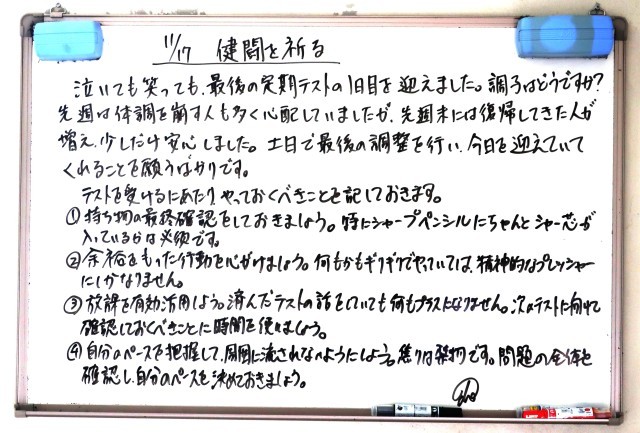 11/17 健闘を祈る
泣いても笑っても、最後の定期テストの1日目を迎えました。調子はどうですか?
先週は体調を崩す人も多く心配していましたが、先週末には復帰してきた人が
増え、少しだけ安心しました。土日で最後の調整を行い、今日を迎えていて
くれることを願うばかりです。
テストを受けるにあたり、やっておくべきことを記しておきます。
①持ち物の最終確認をしておきましょう。特にシャープペンシルにちゃんとシャー芯が
入っているかは必須です。
②余裕をもった行動を心がけましょう。何もかもギリギリでやっていては、精神的なプレッシャー
にしかなりません。
③放課を有効活用しよう。済んだテストの話をしていても何もプラスになりません。次のテストに向けて
確認しておくべきことに時間を使いましょう。
④自分のペースを把握して、周囲に流されないようにしよう。焦りは禁物です。問題の全体を
確認し、自分のペースを決めておきましょう。